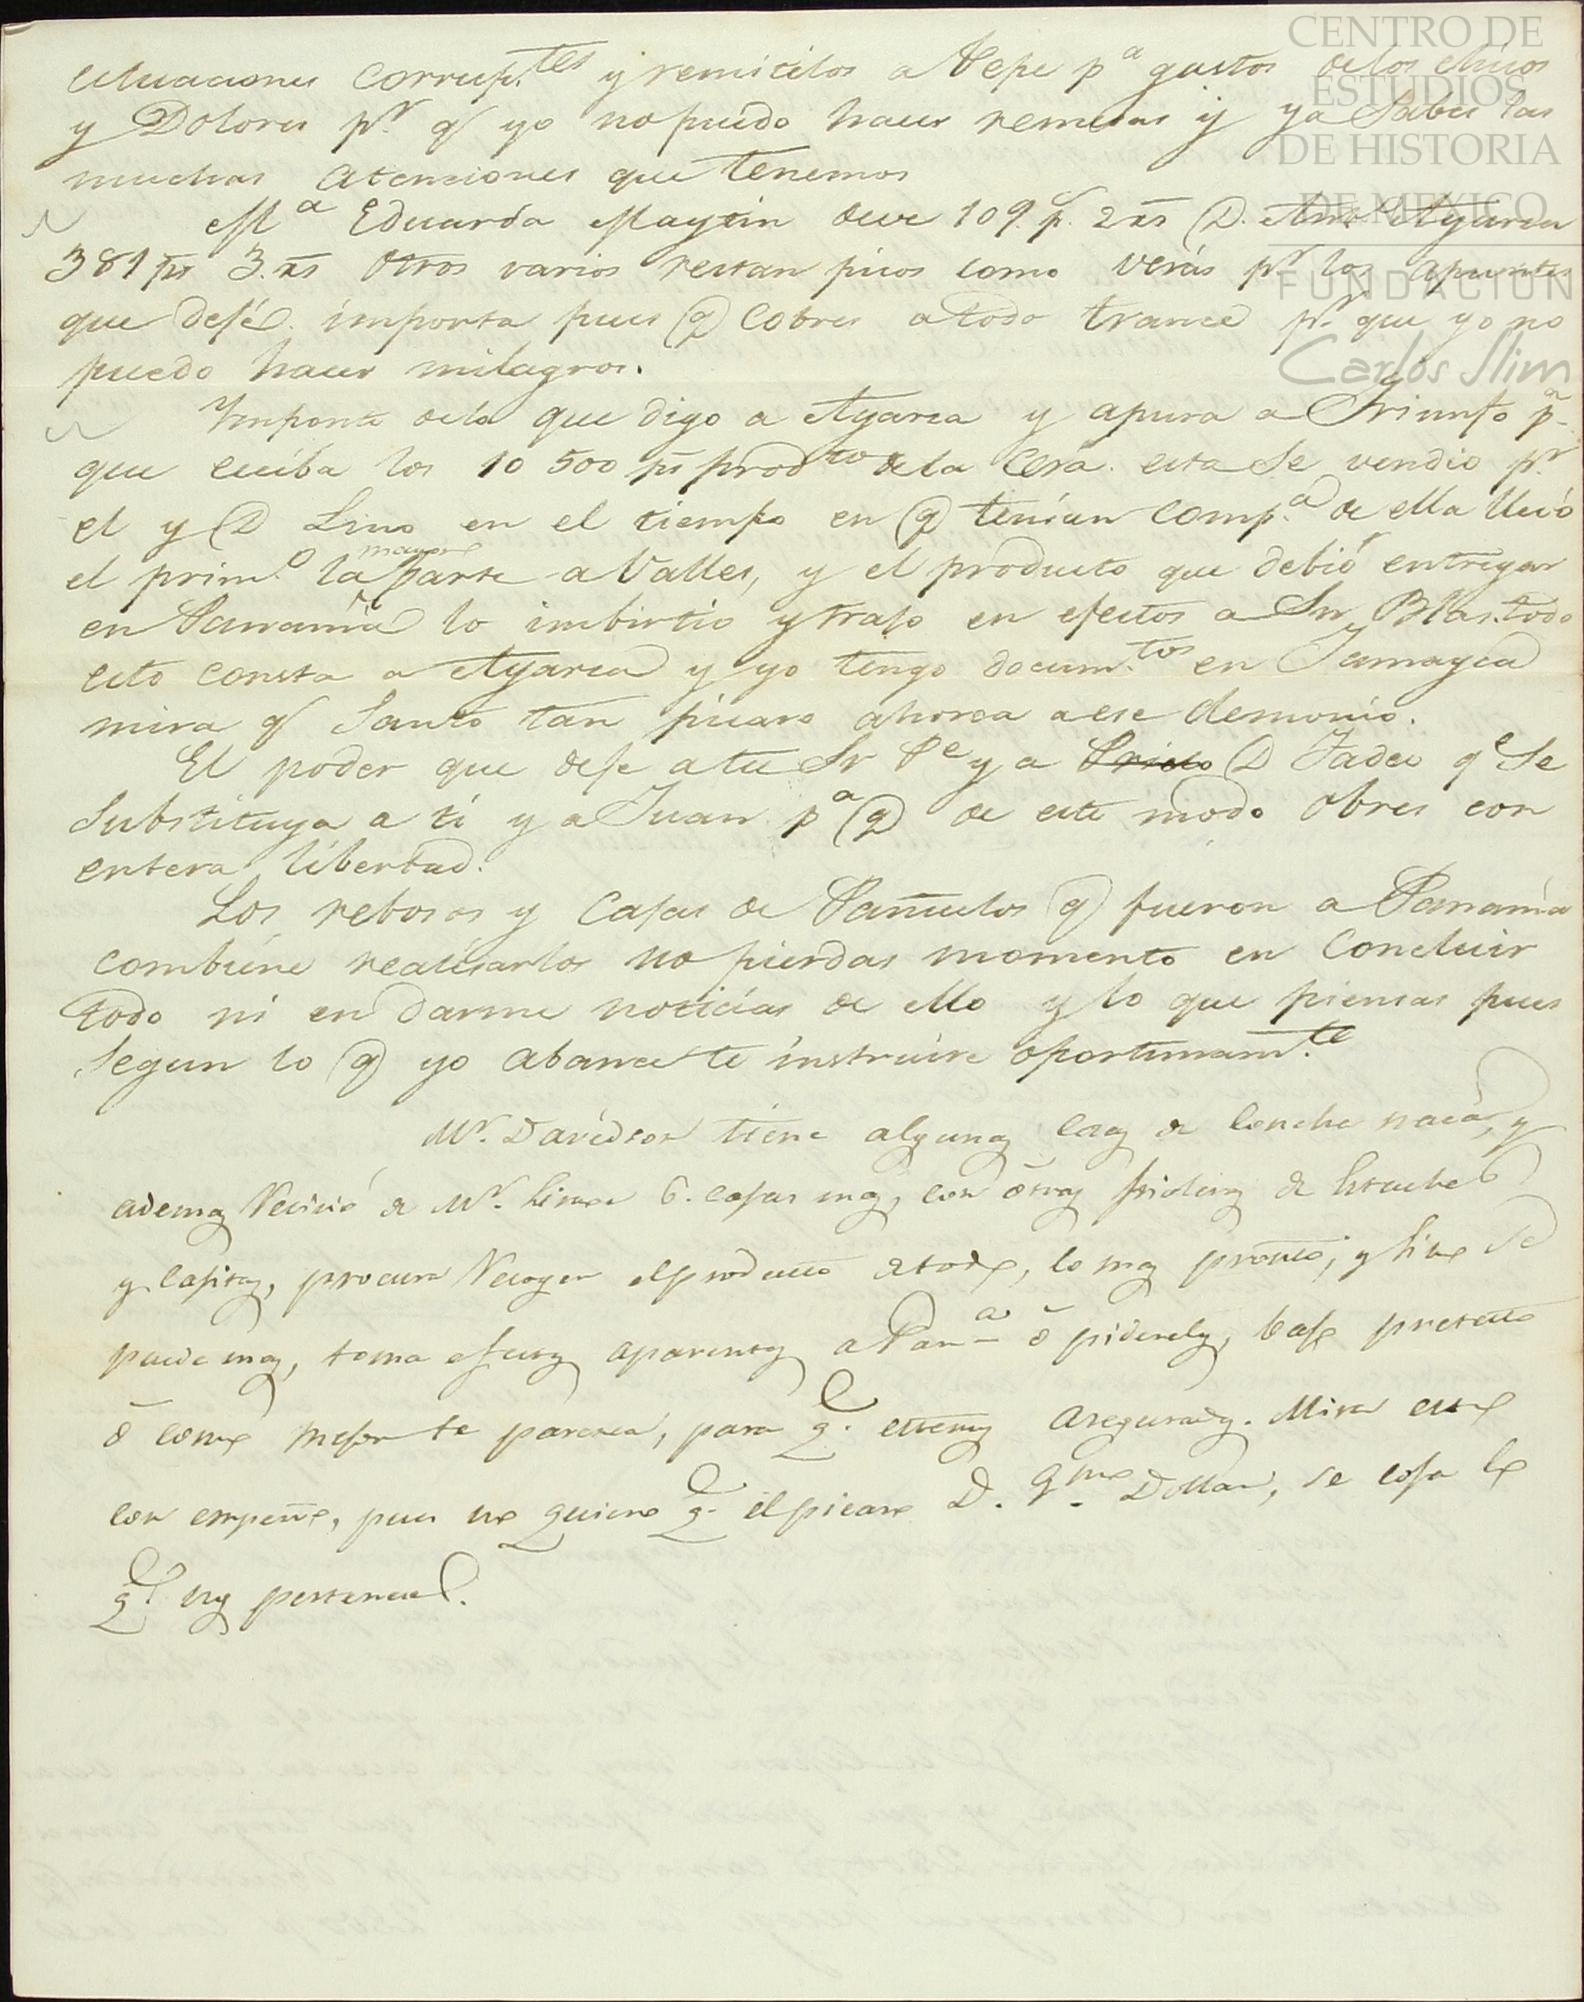 CENTRO DE
ESTUDIOS
DE HISTORIA
DE MEXICO
FUNDACION
Carlos Slim
corresp.tes y remitelos a Pepe p.a gastos de los chicos
y Dolores p.r q yo no puedo hacer remesas y ya sabes las
muchas atenciones que tenemos
M.a Eduarda Maytin deve 109 p.s 2 rs D. Ayarza
381 ps 3. rs Otros varios restan picos como verás p.r los apuntes
que dejé. importa pues q cobres a todo trance p.r que yo no
puedo hacer milagros.
Imponte de lo que digo a Ayarza y apura a Triunfo p.a
que eciba los 10 500 ps prod.to de la Cera. esta se vendio p.r
el y D Lino en el tiempo en q tenian comp.a de ella llevó
el prim.o la mayor parte a Valles, y el producto que debió entregar
en Panamá lo imbirtio y trajo en efectos a Sn Blas. todo
esto consta a Ayarza y yo tengo docum.tos en Jamayca
mira q Santo tan picaro ahorca a ese demonio.
El poder que deje a tu Sr P.e y a D Tadeo q.e se
substituya a ti y a Juan p.a q de este modo obres con
entera libertad.
Los rebosos y Cajas de Pañuelos q fueron a Panamá
combiene realisarlos no pierdas momento en concluir
todo ni en darme noticias de ello y lo que piensas pues
segun lo q yo abance te instruire oportunam.te
Mr. Davidson tiene algunas cajas de concha nacar, y
ademas recivió de Mr. 6. cajas mas, con otras de
y cajitas, procura recoger el producto de todo, lo mas pronto; y si se
puede mas, toma efectos aparentes a Pan.a ó pidescelos, bajo pretesto
ó como mejor te paresca, para q.e estemos asegurados. Mira esto
con empeño, pues no quiero q.e el picaro D. G.mo, se coja lo
q.e nos pertenece.